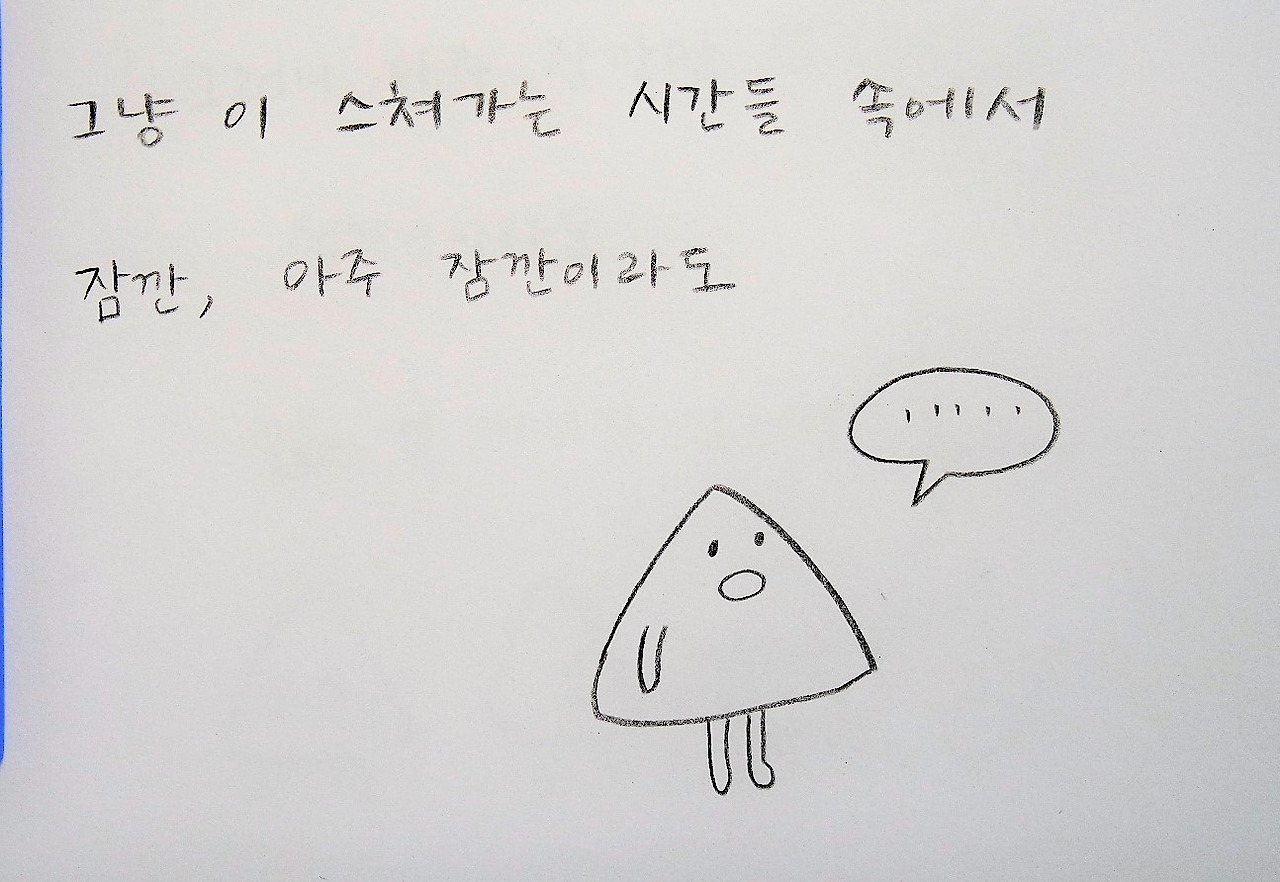 그냥 이 스쳐가는 시간들 속에서
잠깐, 아주 잠깐이라도
.....